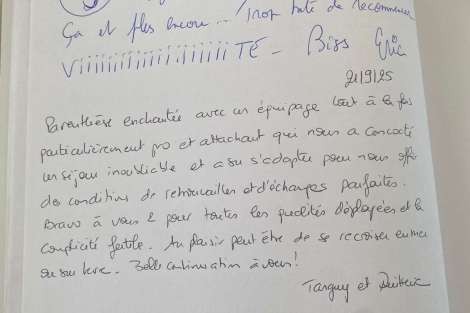 Ça et plus encore... Trop hâte de recommencer
Viiiiiiiiiiiiiiiiiiii TÉ - Biss Eric
21/9/25
Parenthèse enchantée avec un équipage tout à la fois
particulièrement pro et attachant qui nous a concocté
un séjour inoubliable et a su s'adapter pour nous offrir
des conditions de retrouvailles et d'échanges parfaites.
Bravo à vous 2 pour toutes les qualités déployées et la
complicité fertile. Au plaisir peut être de se recroiser en mer
ou sur terre. Belle continuation à vous!
Tanguy et